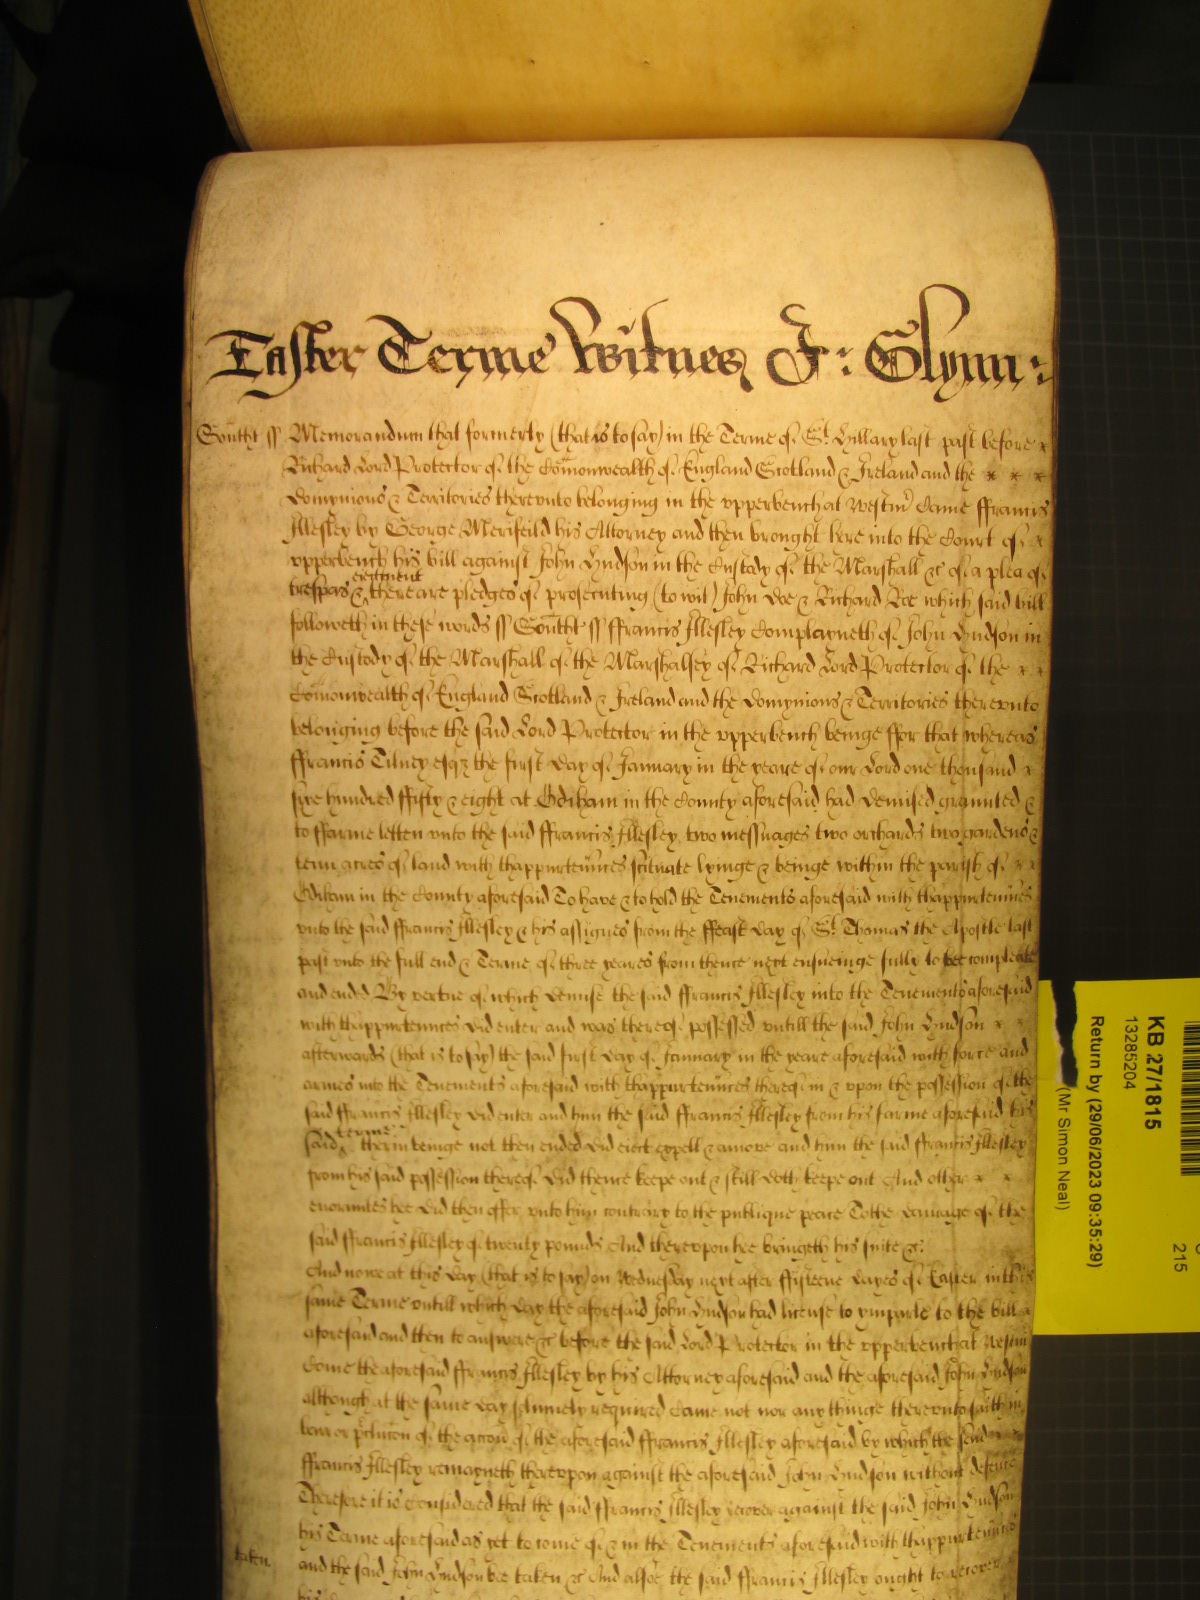 Easter Terme Witnes J: Glynn:
Southt ss Memorandum that formerly (that is to say) in the Terme of St. Hillary last past before
Richard Lord Protector of the Comonwealth of England Scotland & Ireland and the
Domynions & Territories therevnto belonging in the vpperbench at Westmr Came ffrancis
Illesley by George Merifeild his Attorney and then brought here into the Court of
vpperbench his bill against John Hudson in the Custody of the Marshall &c of a plea of
eiectment
trespas & there are pledges of prosecuting (to wit) John Doe & Richard Roe which said bill
followeth in these words ss Southt ss ffrancis Illesley Complayneth of John Hudson in
the Custody of the Marshall of the Marshalsey of Richard Lord Protector of the
Comonwealth of England Scotland & Ireland and the Domynions & Territories therevnto
belonging before the said Lord Protector in the vpperbench beinge ffor that whereas
ffrancis Tilney esqr the first day of January in the yeare of our Lord one thousand
sixe hundred ffifty & eight at Odiham in the County aforesaid had demised graunted &
to ffarme letten vnto the said ffrancis Illesley two messuages two orchards two gardens &
tenn acres of land with thappurtennces scituate lyinge & beinge within the parish of
Odiham in the County aforesaid To have & to hold the Tenements aforesaid with thappurtennces
vnto the said ffrancis Illesley & his assignes from the ffeast day of St. Thomas the Apostle last
past vnto the full end & Terme of three yeares from thence next ensueinge fully to bee compleate
and ended By vertue of which demise the said ffrancis Illesley into the Tenements aforesaid
with thappurtennces did enter and was thereof possessed vntill the said John Hudson
afterwards (that is to say) the said first day of January in the yeare aforesaid with force and
armes into the Tenements aforesaid with thappurtennces thereof in & vpon the possession of the
said ffrancis Illesley did enter and him the said ffrancis Illesley from his farme aforesaid his
terme
said therin beinge not then ended did eiect expell & amove and him the said ffrancis Illesley
from his said possession thereof did thence keepe out & still doth keepe out And other
enormities hee did then offer vnto him contrary to the publique peace To the damage of the
said ffrancis Illesley of twenty pounds And therevpon hee bringeth his suite &c.
And nowe at this day (that is to say) on Wednesday next after ffifteene dayes of Easter in this
same Terme vntill which day the aforesaid John Hudson had license to ymparle to the bill
aforesaid and then to answere &c before the said Lord Protector in the vpperbench at Westm
Come the aforesaid ffrancis Illesley by his Attorney aforesaid and the aforesaid John Hudson
although at the same day solemnely required Came not nor any thinge therevnto saith in
barr or of the accon of the aforesaid ffrancis Illesley aforesaid by which the said
ffrancis Illesley remayneth therevpon against the aforesaid John Hudson without defence
Therefore it is Considered that the said ffrancis Illesley recover against the said John Hudson
his Terme aforesaid as yet to come of & in the Tenements aforesaid with thappurtennces
taken
and the said John Hudson bee taken &c And alsoe the said ffrancis Illesley ought to recover
KB 27/1815
13285204
Return by (29/06/2023 09:35:29)
(Mr Simon Neal)
215